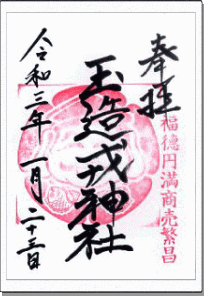 奉拝
福徳円満商売繁昌
玉造戎神社
令和三年一月二十三日